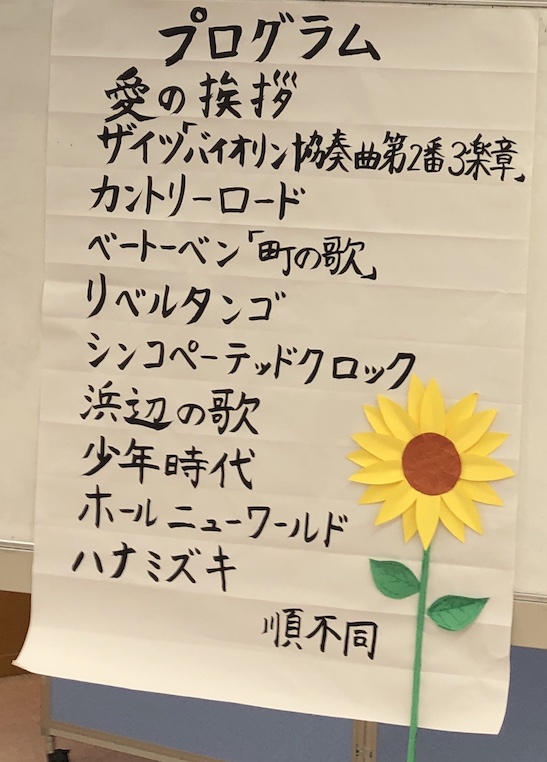 プログラム
愛の挨拶
ザイツ「バイオリン協奏曲第2番3楽章」
カントリーロード
ベートーベン「町の歌」
リベルタンゴ
シンコペーテッドクロック
浜辺の歌
少年時代
ホールニューワールド
ハナミズキ
順不同